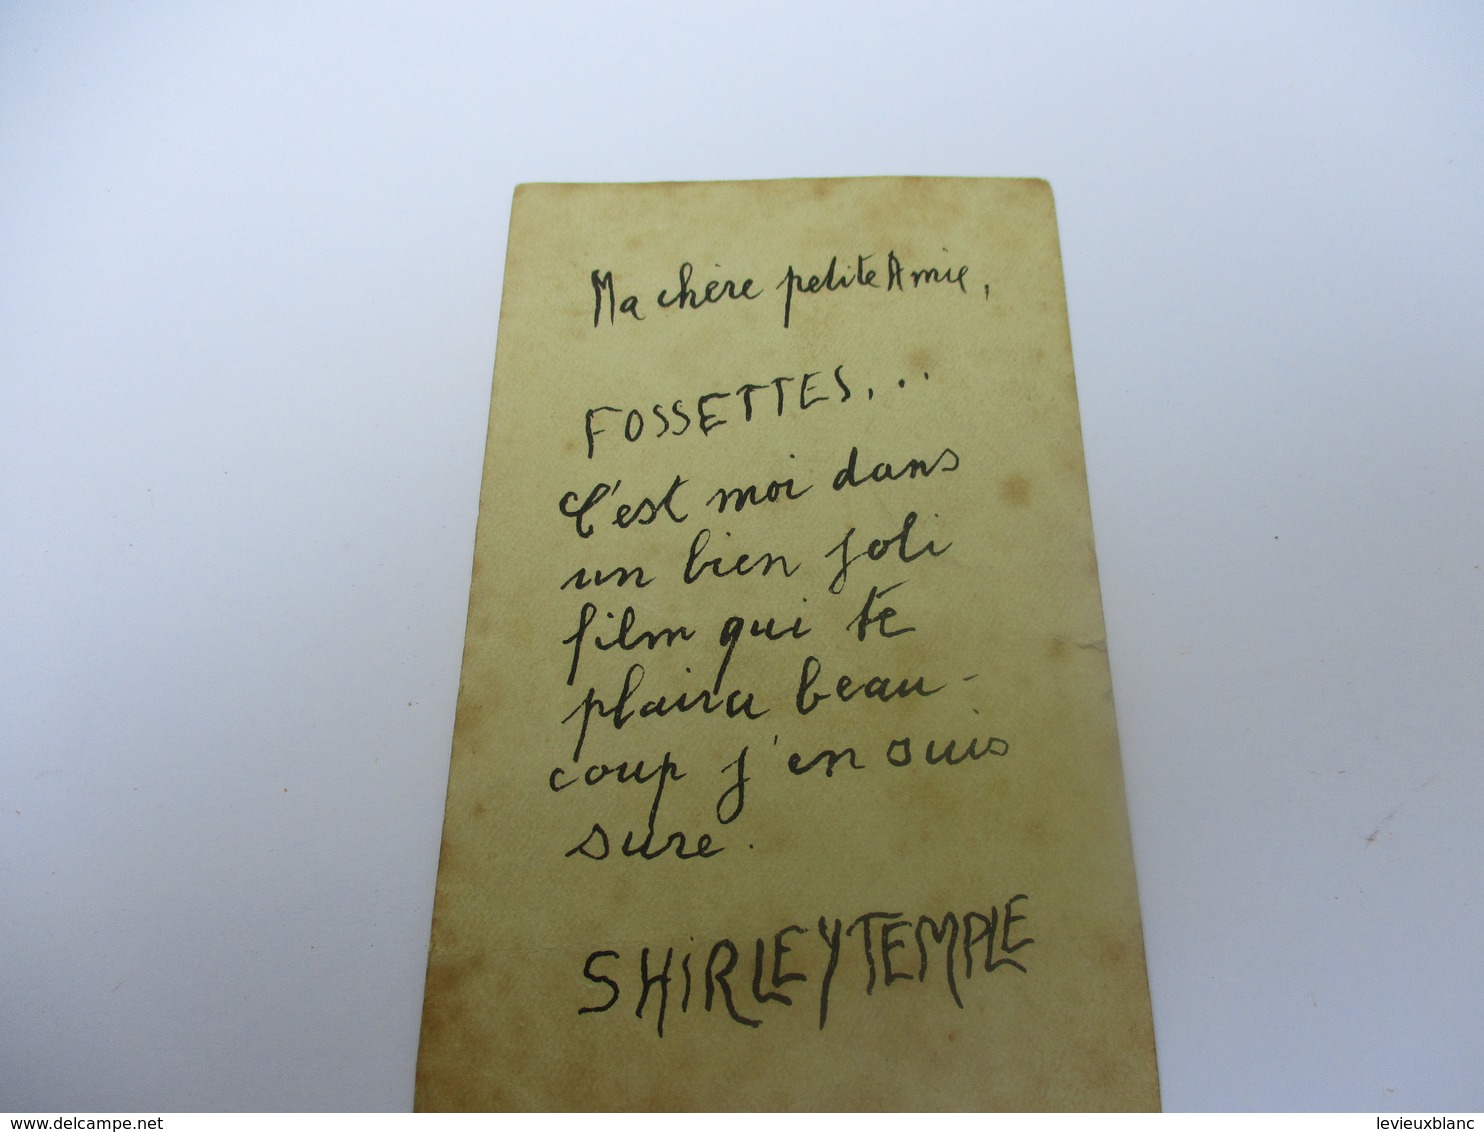 Ma chère petite Amie,
FOSSETTES...
C'est moi dans
un bien joli
film qui te
plaira beau-
coup j'en suis
sure.
SHIRLEY TEMPLE
delcampe.net
levieuxblanc